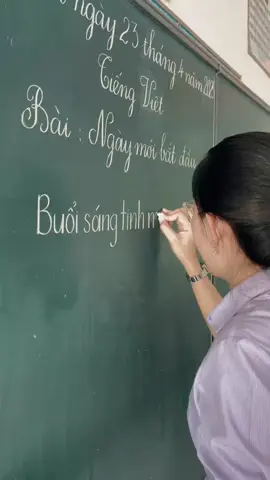 ngày 23 tháng 4 năm 2025
Tiếng Việt
Bài : Ngày mới bắt đầu
Buổi sáng tinh m